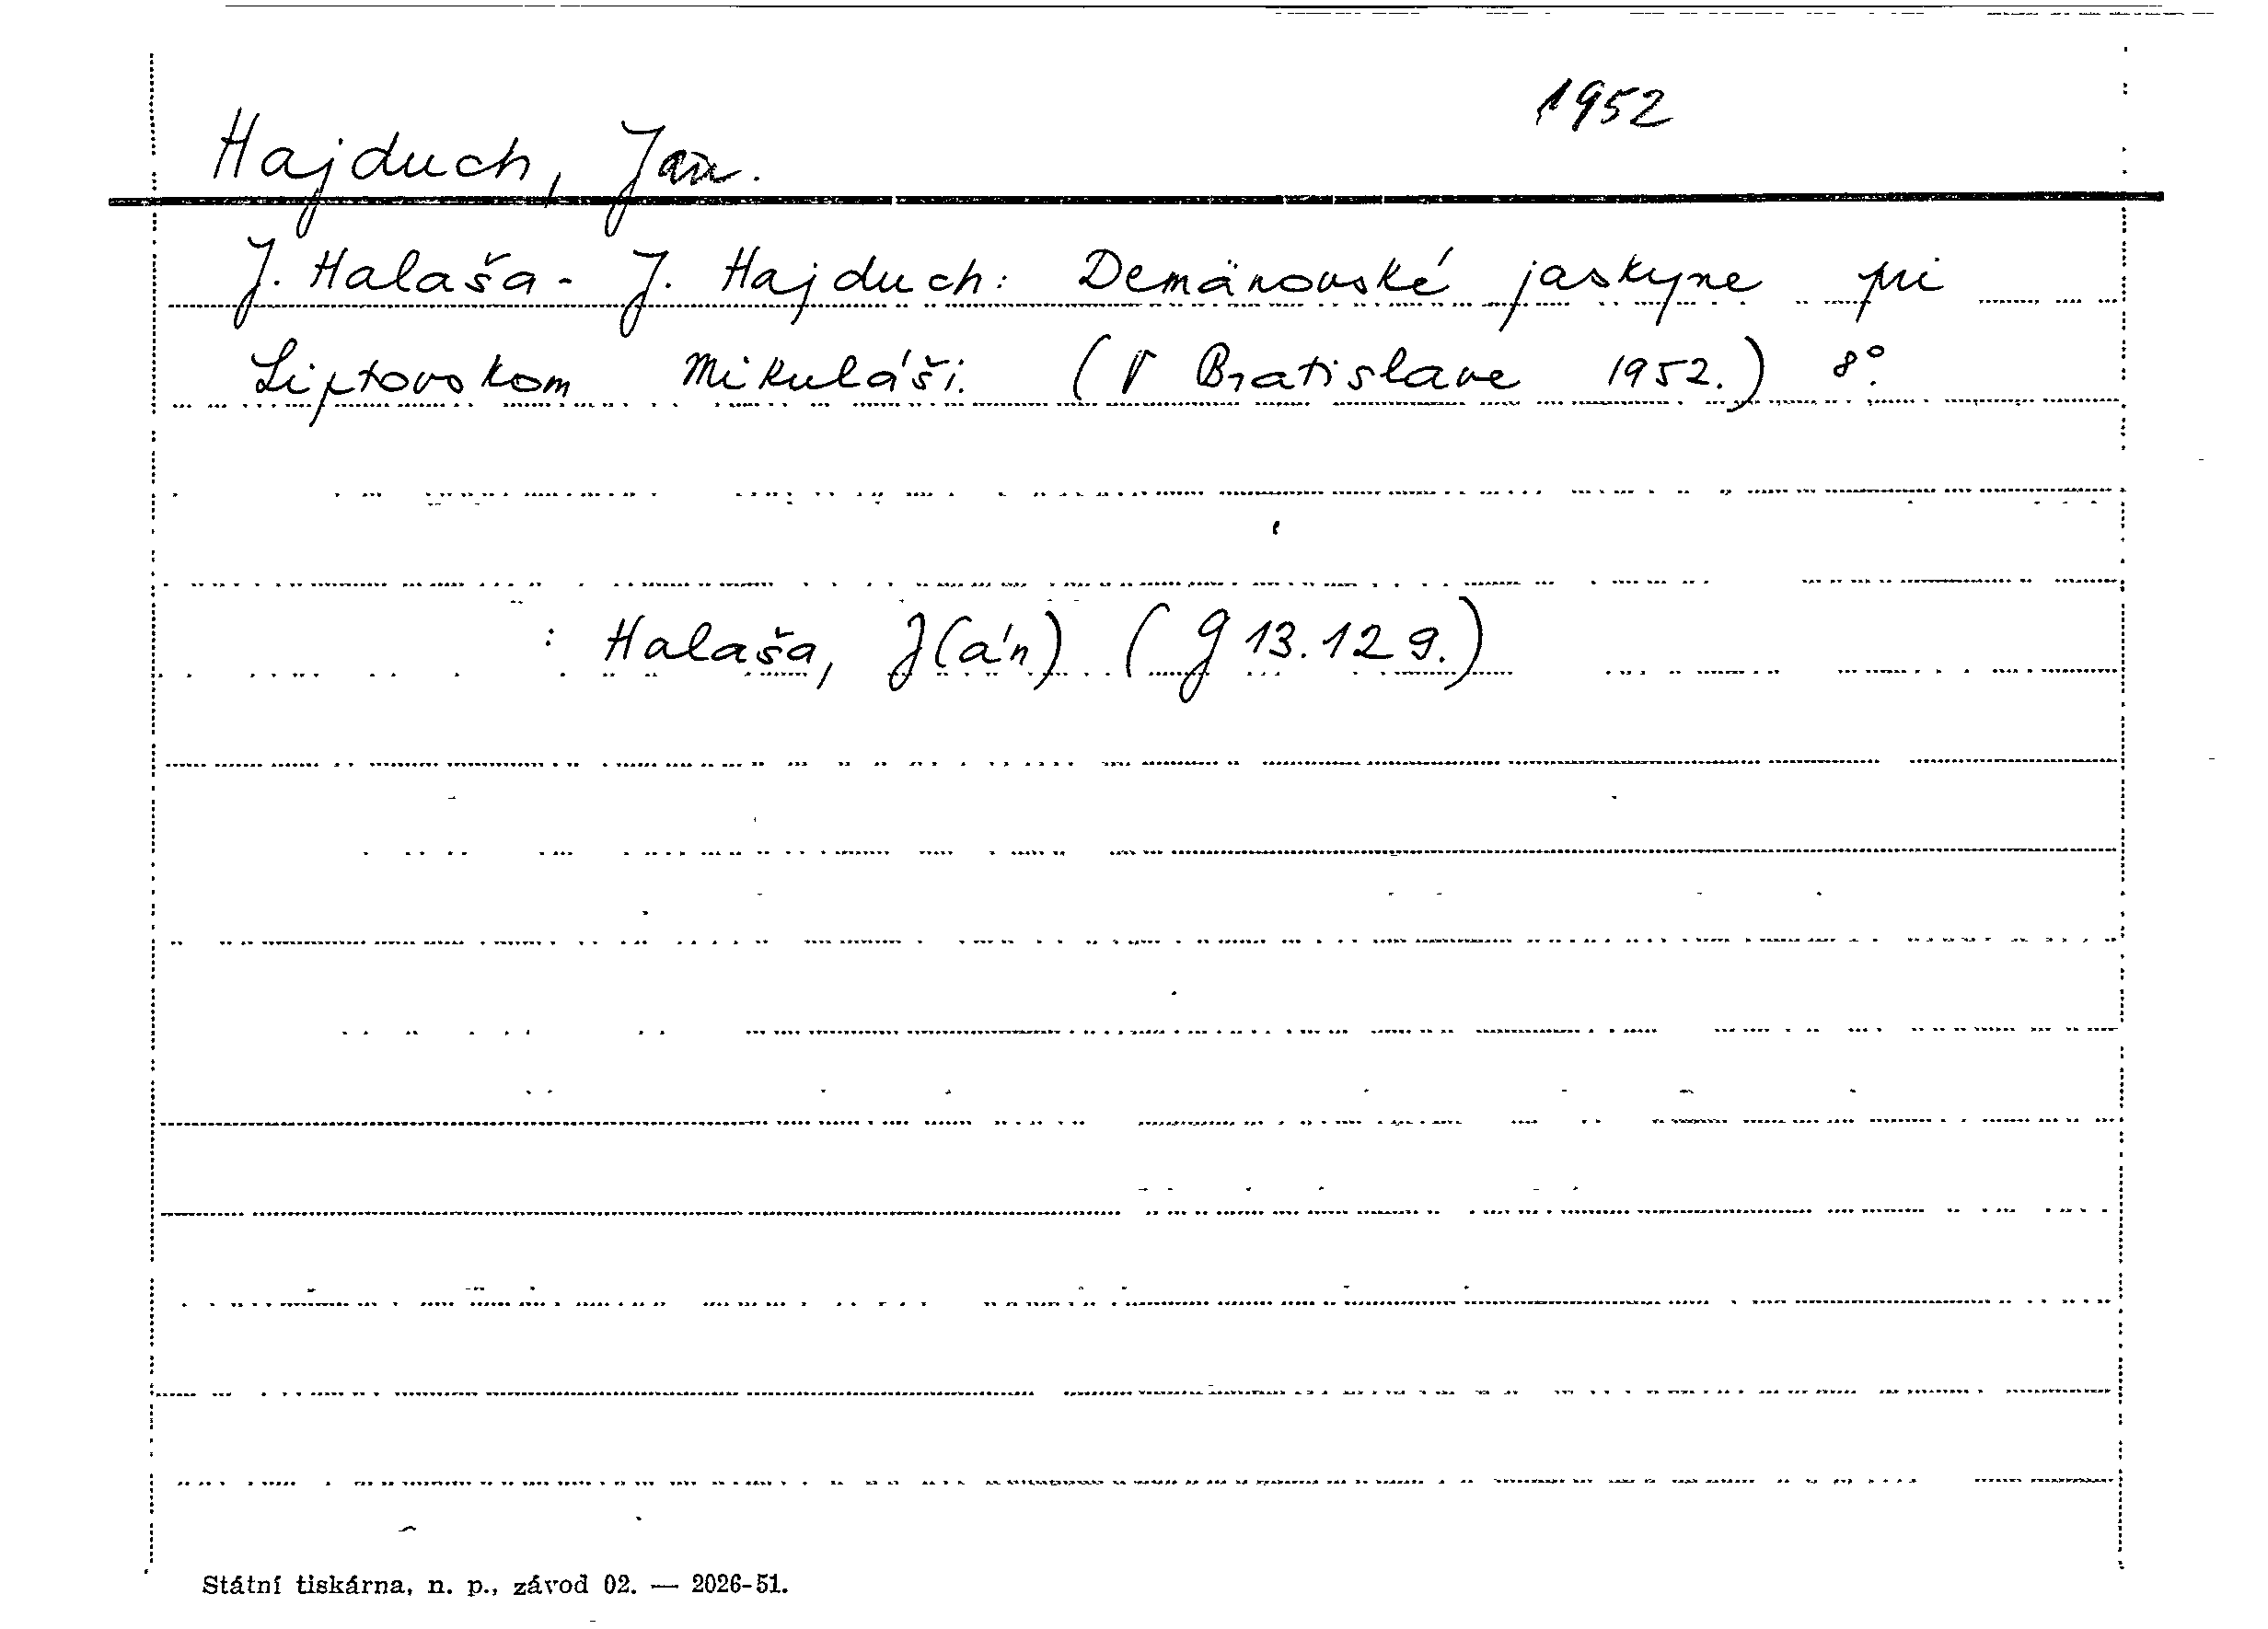 1952
Hajduch, Ján.
J. Halaša - J. Hajduch: Demänovské jaskyne pri
Liptovskom Mikuláši. (V Bratislave 1952.) 8°.
: Halaša, J(án) (G 13.129.)
Státní tiskárna, n. p., závod 02. — 2026-51.